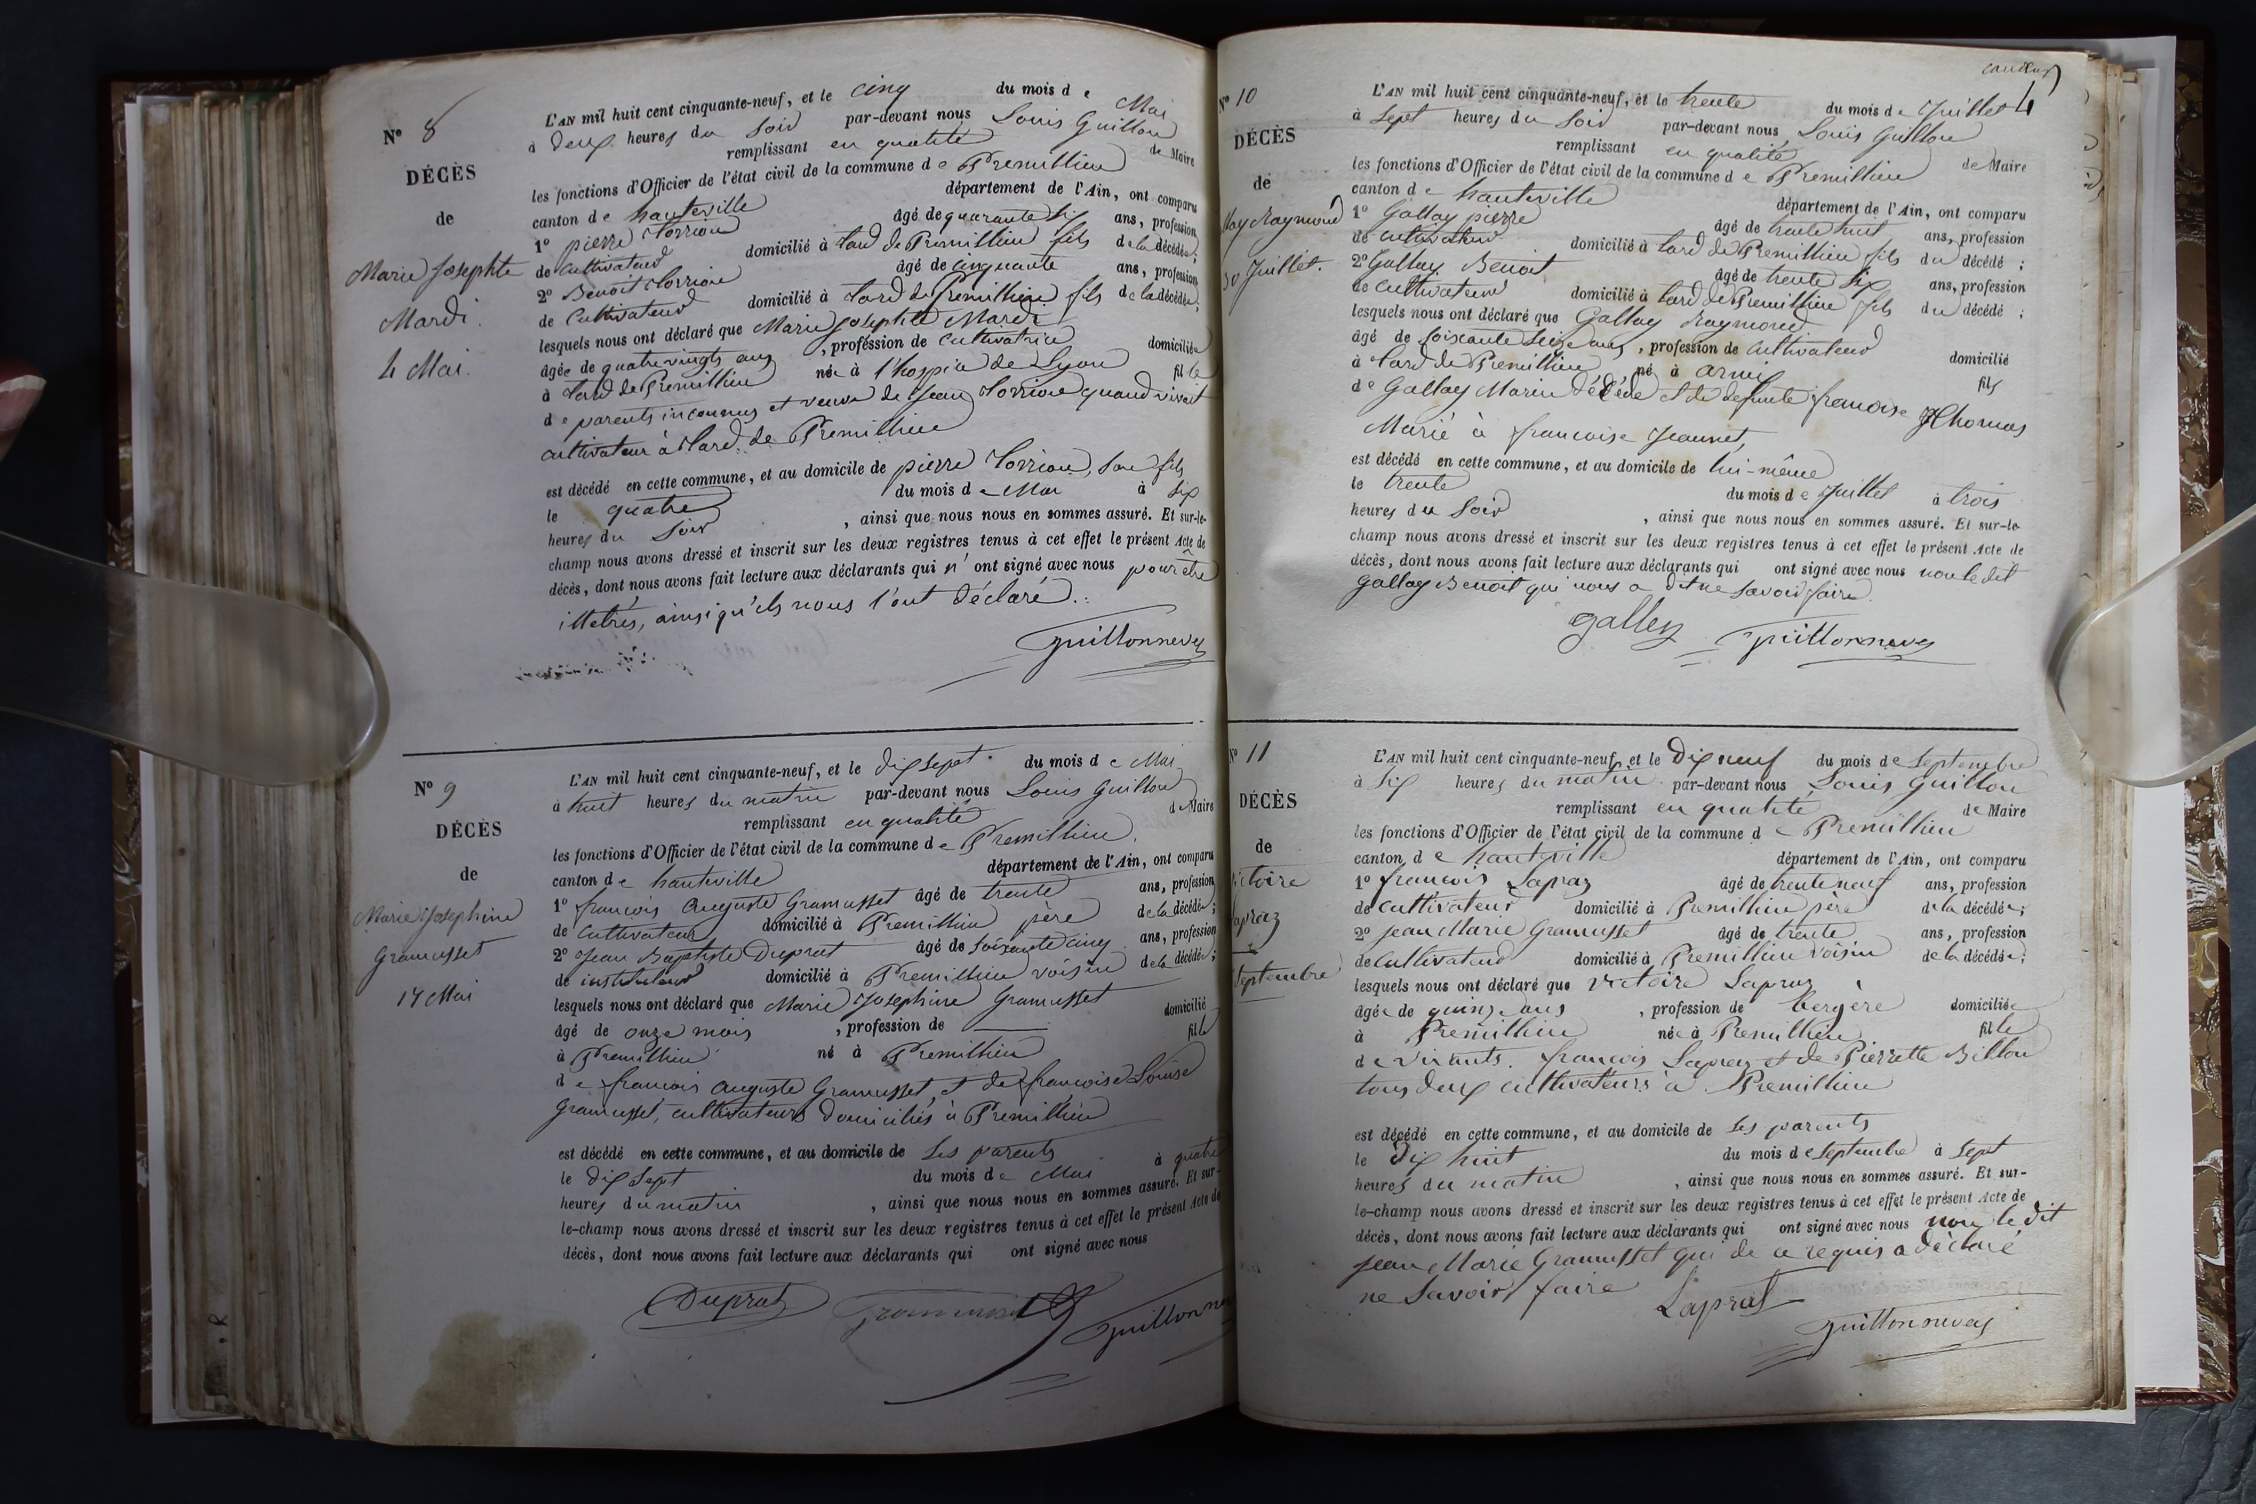 N° 8
DÉCÈS
de
Marie Josephte
Mardi.
4 Mai.
L'AN mil huit cent cinquante-neuf, et le cinq du mois de Mai
à deux heures du soir par-devant nous Louis Guillon
remplissant en qualité de Maire
les fonctions d'Officier de l'état civil de la commune de Premillieu
canton de hauteville département de l'Ain, ont comparu
1° pierre âgé de quarante six ans, profession
de cultivateur domicilié à Lard de Premillieu fils de la décédée;
2° Benoit âgé de cinquante ans, profession
de Cultivateur domicilié à Lard de Premillieu fils de la décédée;
lesquels nous ont déclaré que Marie Josephte Mardi
âgée de quatre vingts ans, profession de cultivatrice domiciliée
à Lard de Premillieu née à l'hospice de Lyon fille
de parents inconnus et veuve de Jean quand vivait
cultivateur à Lard de Premillieu
est décédé en cette commune, et au domicile de pierre son fils
le quatre du mois de Mai à six
heures du soir, ainsi que nous nous en sommes assuré. Et sur-le-
champ nous avons dressé et inscrit sur les deux registres tenus à cet effet le présent Acte de
décès, dont nous avons fait lecture aux déclarants qui n'ont signé avec nous pour être
illetrés, ainsi qu'ils nous l'ont déclaré.
N° 9
DÉCÈS
de
Marie Josephine
Gramusset
17 Mai
L'AN mil huit cent cinquante-neuf, et le dix sept du mois de Mai
à huit heures du matin par-devant nous Louis Guillon
remplissant en qualité de Maire
les fonctions d'Officier de l'état civil de la commune de Premillieu.
canton de hauteville département de l'Ain, ont comparu
1° françois Auguste Gramusset âgé de trente ans, profession
de Cultivateur domicilié à Premillieu père de la décédée;
2° Jean Baptiste Duprat âgé de soixante cinq ans, profession
de instituteur domicilié à Premillieu voisin de la décédée;
lesquels nous ont déclaré que Marie Josephine Gramusset
âgé de onze mois, profession de domicilié
à Premillieu né à Premillieu fille
de françois Auguste Gramusset, et de françoise Louise
Gramusset, cultivateurs domiciliés à Premillieu
est décédé en cette commune, et au domicile de ses parents
le dix sept du mois de Mai à quatre
heures du matin, ainsi que nous nous en sommes assuré. Et sur-
le-champ nous avons dressé et inscrit sur les deux registres tenus à cet effet le présent Acte de
décès, dont nous avons fait lecture aux déclarants qui ont signé avec nous
Duprat
N° 10
DÉCÈS
de
Raymond
30 Juillet.
4
L'AN mil huit cent cinquante-neuf, et le trente du mois de Juillet
à sept heures du soir par-devant nous Louis Guillon
remplissant en qualité de Maire
les fonctions d'Officier de l'état civil de la commune de Premillieu
canton de hauteville département de l'Ain, ont comparu
1° Gallay pierre âgé de trente huit ans, profession
de cultivateur domicilié à Lard de Premillieu fils du décédé;
2° Gallay Benoit âgé de trente six ans, profession
de cultivateur domicilié à Lard de Premillieu fils du décédé;
lesquels nous ont déclaré que Gallay Raymond
âgé de soixante seize ans, profession de Cultivateur domicilié
à Lard de Premillieu, né à armix fils
de Gallay Marin décédé et de defunte francoise Thomas
Marié à francoise Jeannet,
est décédé en cette commune, et au domicile de lui-même
le trente du mois de Juillet à trois
heures du soir, ainsi que nous nous en sommes assuré. Et sur-le-
champ nous avons dressé et inscrit sur les deux registres tenus à cet effet le présent Acte de
décès, dont nous avons fait lecture aux déclarants qui ont signé avec nous non le dit
gallay Benoit qui nous a dit ne savoir faire.
galley
N° 11
DÉCÈS
de
Septembre
L'AN mil huit cent cinquante-neuf, et le Dix neuf du mois de Septembre
à six heures du matin par-devant nous Louis Guillon
remplissant en qualité de Maire
les fonctions d'Officier de l'état civil de la commune de Premillieu
canton de hauteville département de l'Ain, ont comparu
1° françois Lapraz âgé de trente neuf ans, profession
de cultivateur domicilié à Premillieu père de la décédée;
2° Jean Marie Gramusset âgé de trente ans, profession
de Cultivateur domicilié à Premillieu voisin de la décédée;
lesquels nous ont déclaré que Victoire Lapraz
âgée de quinze ans, profession de bergère domiciliée
à Premillieu née à Premillieu fille
de vivants françois Lapraz et de Pierrette Billon
tous deux cultivateurs à Premillieu
est décédé en cette commune, et au domicile de ses parents
le Dix huit du mois de Septembre à sept
heures du matin, ainsi que nous nous en sommes assuré. Et sur-
le-champ nous avons dressé et inscrit sur les deux registres tenus à cet effet le présent Acte de
décès, dont nous avons fait lecture aux déclarants qui ont signé avec nous non le dit
Jean Marie Gramusset qui de ce requis a déclaré
ne savoir faire
Lapras